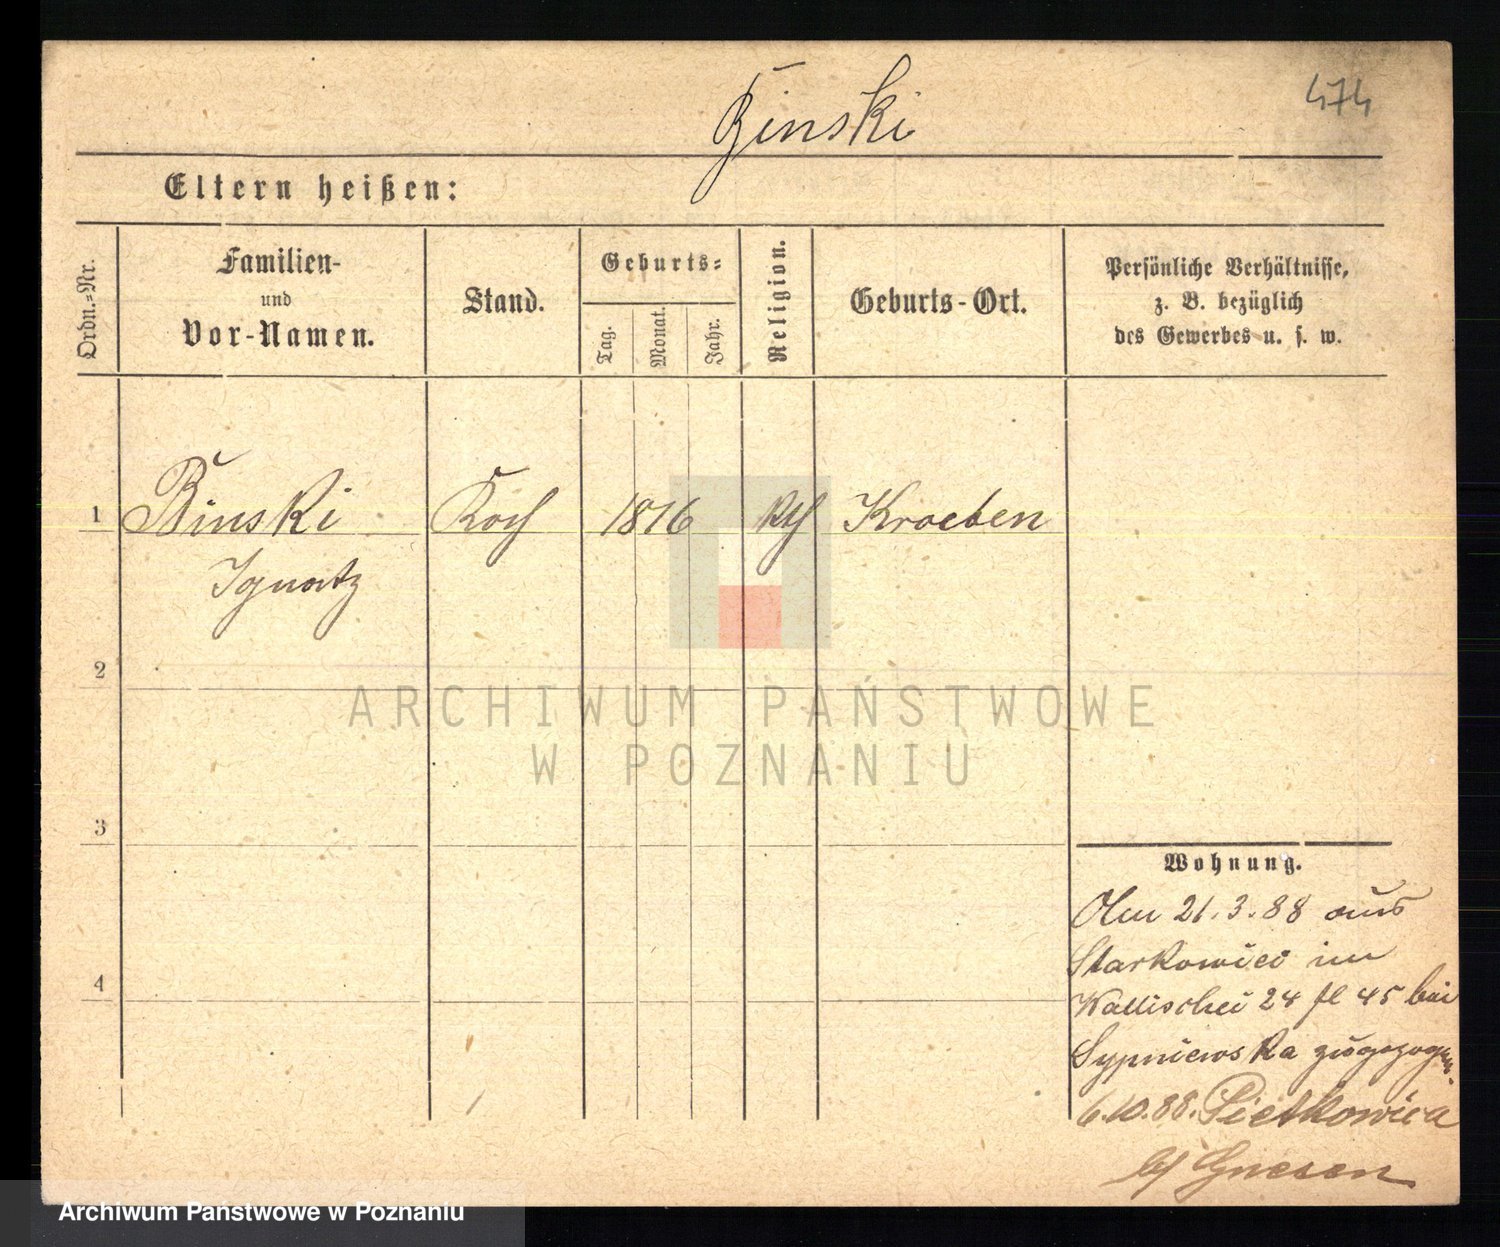 Binski
474
Eltern heißen:
Ordn.=Nr.
Familien-
und
Vor-Namen.
Stand.
Geburts=
Tag.
Monat.
Jahr.
Religion.
Geburts-Ort.
Persönliche Verhältnisse,
z. B. bezüglich
des Gewerbes u. s. w.
1 Binski Koch 1816 Kth Kroeben
Ignatz
2
ARCHIWUM PAŃSTWOWE
W POZNANIU
3
4
Wohnung.
Am 21.3.88 aus
Starkowiec im
Wallischei 24 fl 45 bei
Sypniewska zugezogen.
6.10.88.
b/ Gnesen
Archiwum Państwowe w Poznaniu